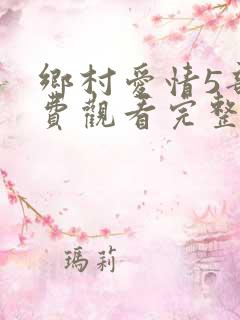 鄉村愛情5
費觀看完整
瑪莉